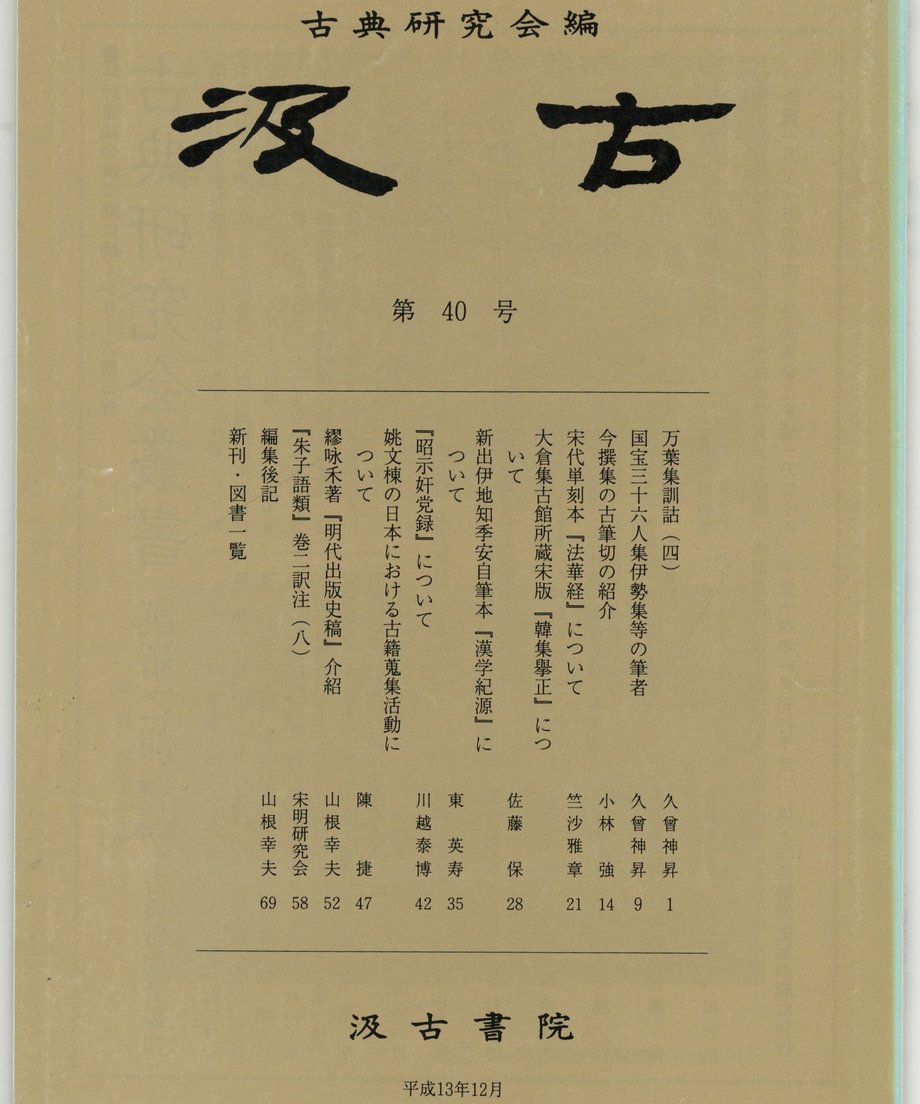 古典研究会編
汲古
第 40 号
万葉集訓詁（四） 久曾神昇 1
国宝三十六人集伊勢集等の筆者 久曾神昇 9
今撰集の古筆切の紹介 小林強 14
宋代単刻本『法華経』について 竺沙雅章 21
大倉集古館所蔵宋版『韓集擧正』につ
いて 佐藤保 28
新出伊地知季安自筆本『漢学紀源』に
ついて 東英寿 35
『昭示奸党録』について 川越泰博 42
姚文棟の日本における古籍蒐集活動に
ついて 陳捷 47
繆咏禾著『明代出版史稿』介紹 山根幸夫 52
『朱子語類』巻二訳注（八） 宋明研究会 58
編集後記 山根幸夫 69
新刊・図書一覧
汲古書院
平成13年12月